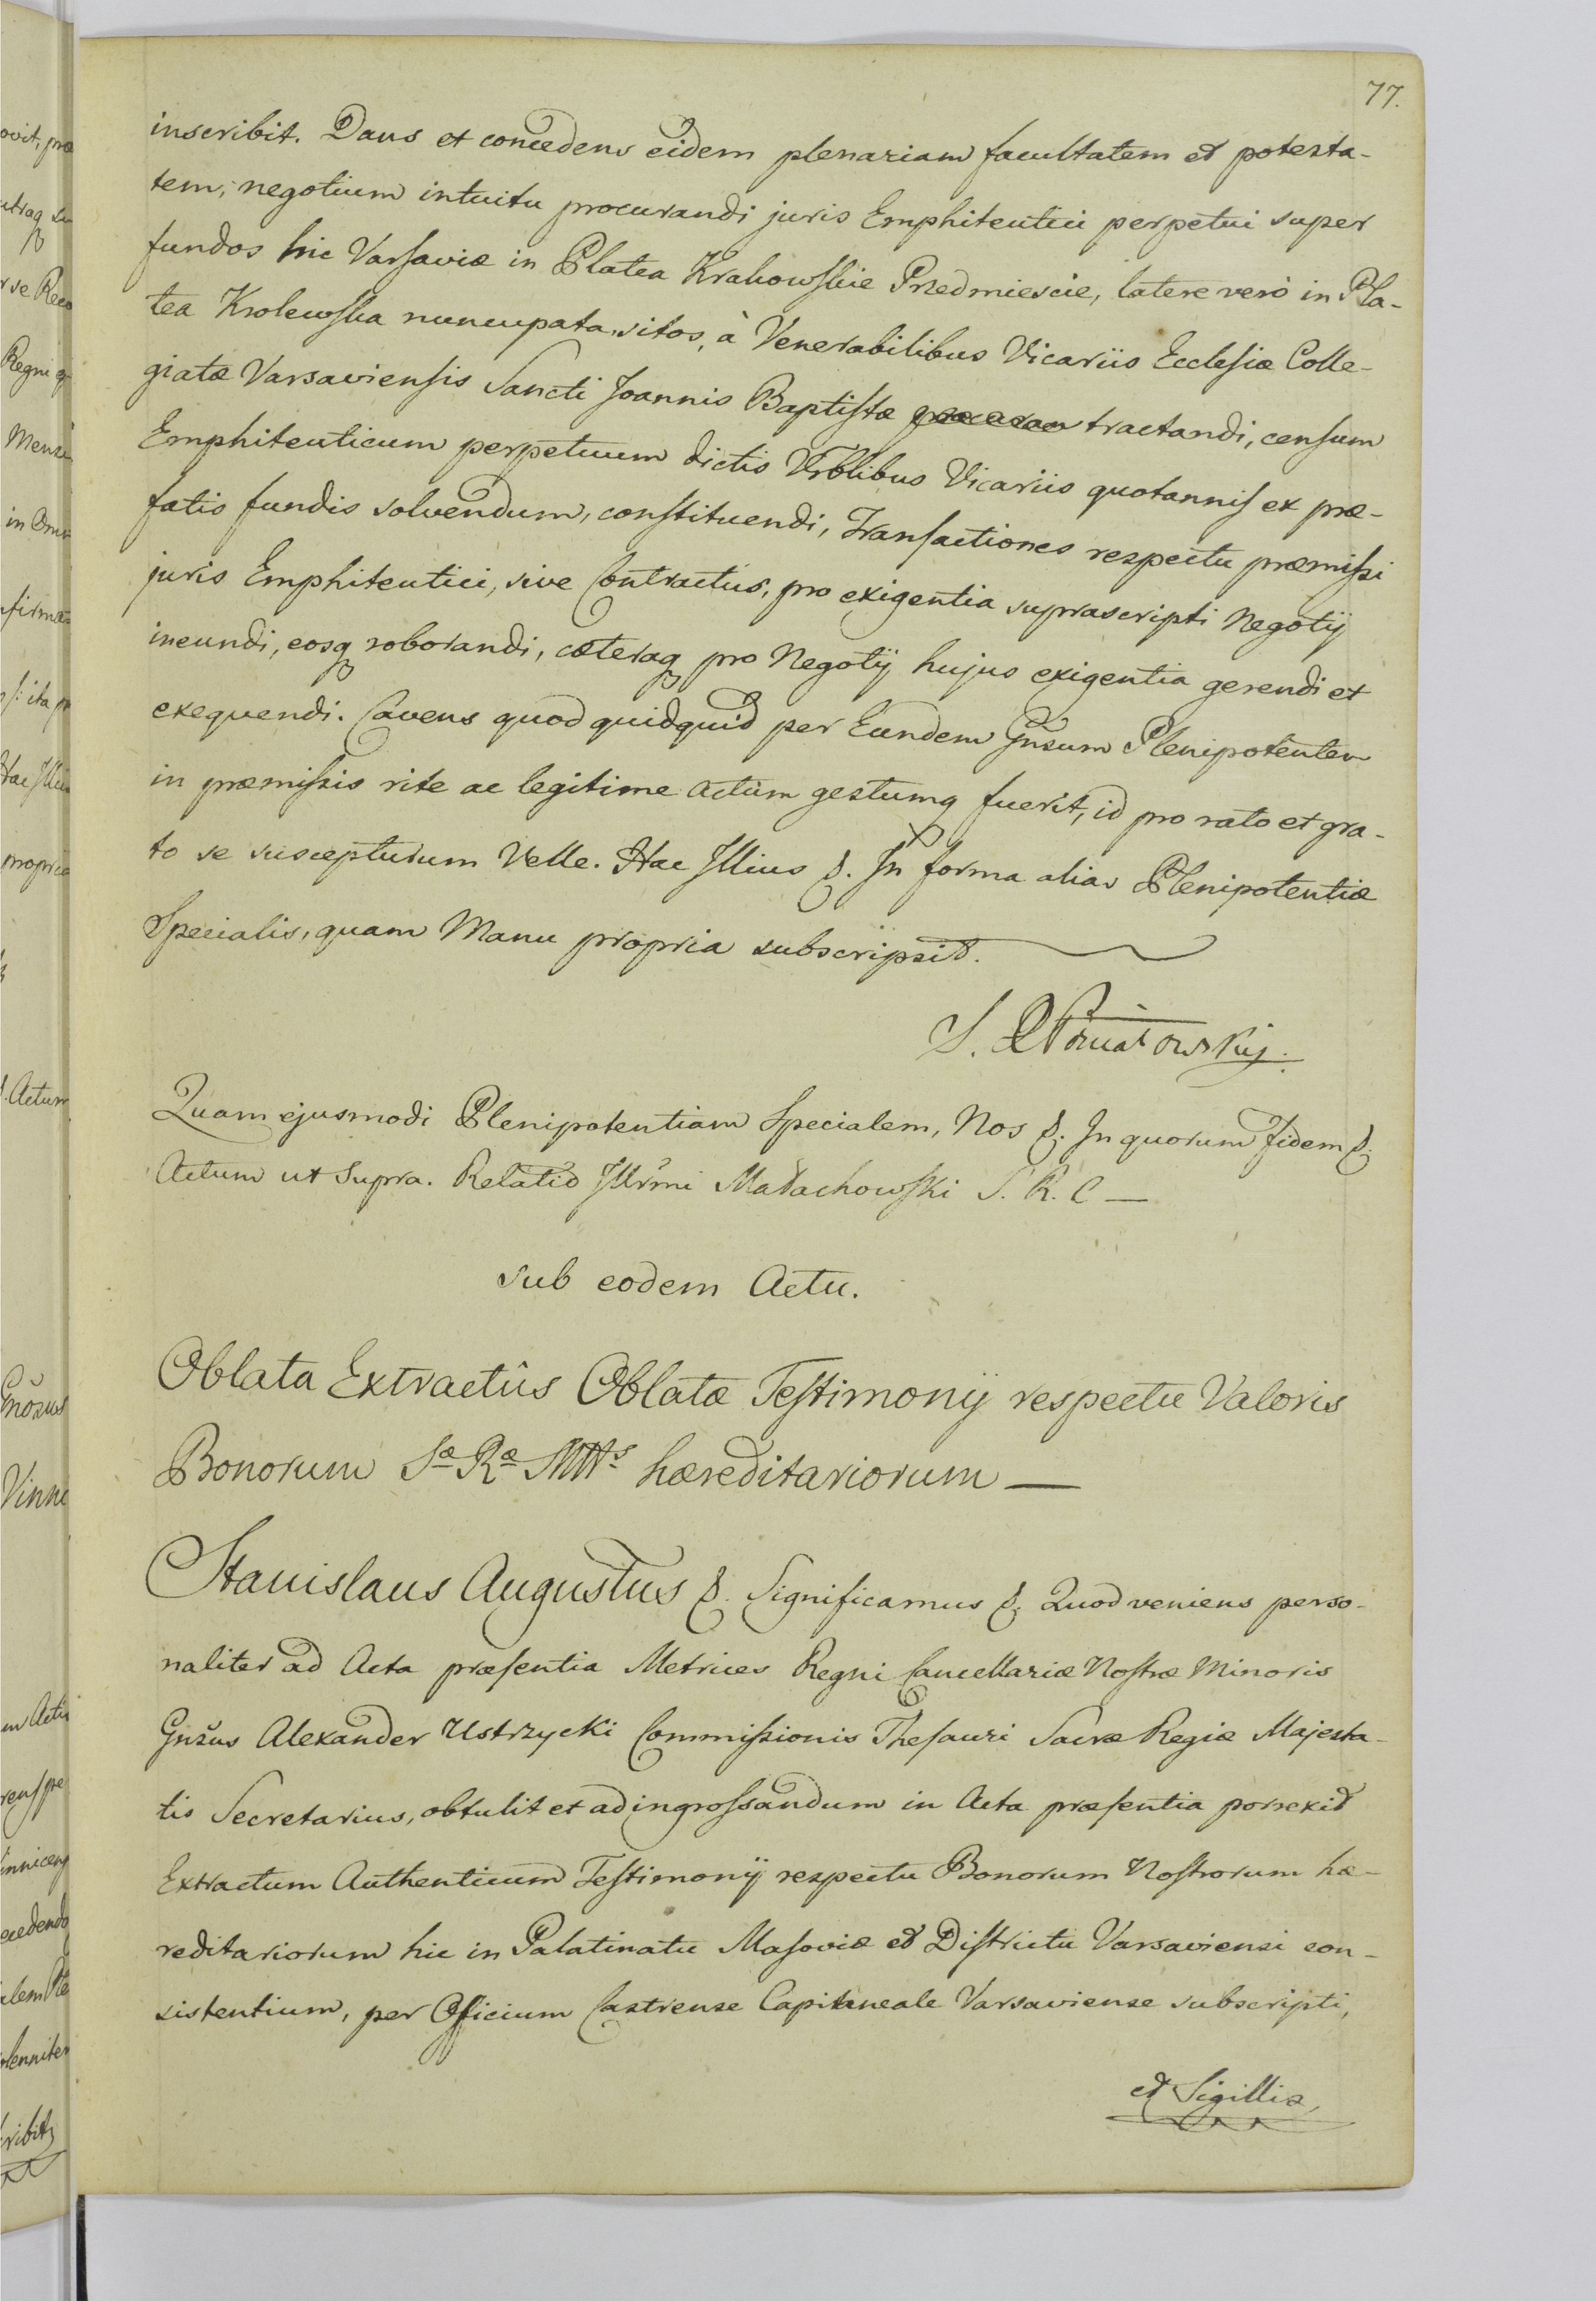 77.
inscribit. Dans et concedens eidem plenariam facultatem et potesta-
tem, negotium intuitu procurandi juris Emphiteutici perpetui super
fundos hic Varsaviæ in Platea Krakowskie Przedmiescie, latere verò in Pla-
tea Krolewska nuncupata, sitos, à Venerabilibus Vicariis Ecclesiæ Colle-
giatæ Varsaviensis Sancti Joannis Baptistæ tractandi, censum
Emphiteuticum perpetuum dictis Vrblibus Vicariis quotannis ex præ-
fatis fundis solvendum, constituendi, Transactiones respectu præmissi
juris Emphiteutici, sive Contractus, pro exigentia suprascripti Negotij
ineundi, eosq roborandi, cæteraq pro Negotij hujus exigentia gerendi et
exequendi. Cavens quod quidquid per Eundem Gnsum Plenipotentem
in præmissis rite ac legitime actum gestumq fuerit, id pro rato et gra-
to se suscepturum Velle. Hac Illius &. In forma alias Plenipotentiæ
Specialis, quam Manu propria subscripsit.
S. Poniatowskij.
Quam ejusmodi Plenipotentiam Specialem, Nos &. In quorum fidem &.
Actum ut supra. Relatio Illrmi Małachowski S. R. C —
sub eodem Actu.
Oblata Extractûs Oblatæ Testimonij respectu Valoris
Bonorum Sæ Ræ Mttis hæreditariorum —
Stanislaus Augustus &. Significamus &. Quod veniens perso-
naliter ad Acta præsentia Metrices Regni Cancellariæ Nostræ Minoris
Gnsus Alexander Ustrzycki Commissionis Thesauri Sacræ Regiæ Majesta-
tis Secretarius, obtulit et ad ingrossandum in Acta præsentia porrexit
Extractum Authenticum Testimonij respectu Bonorum Nostrorum hæ-
reditariorum hic in Palatinatu Masoviæ et Districtu Varsaviensi con-
sistentium, per Officium Castrense Capitaneale Varsaviense subscripti,
et Sigillis